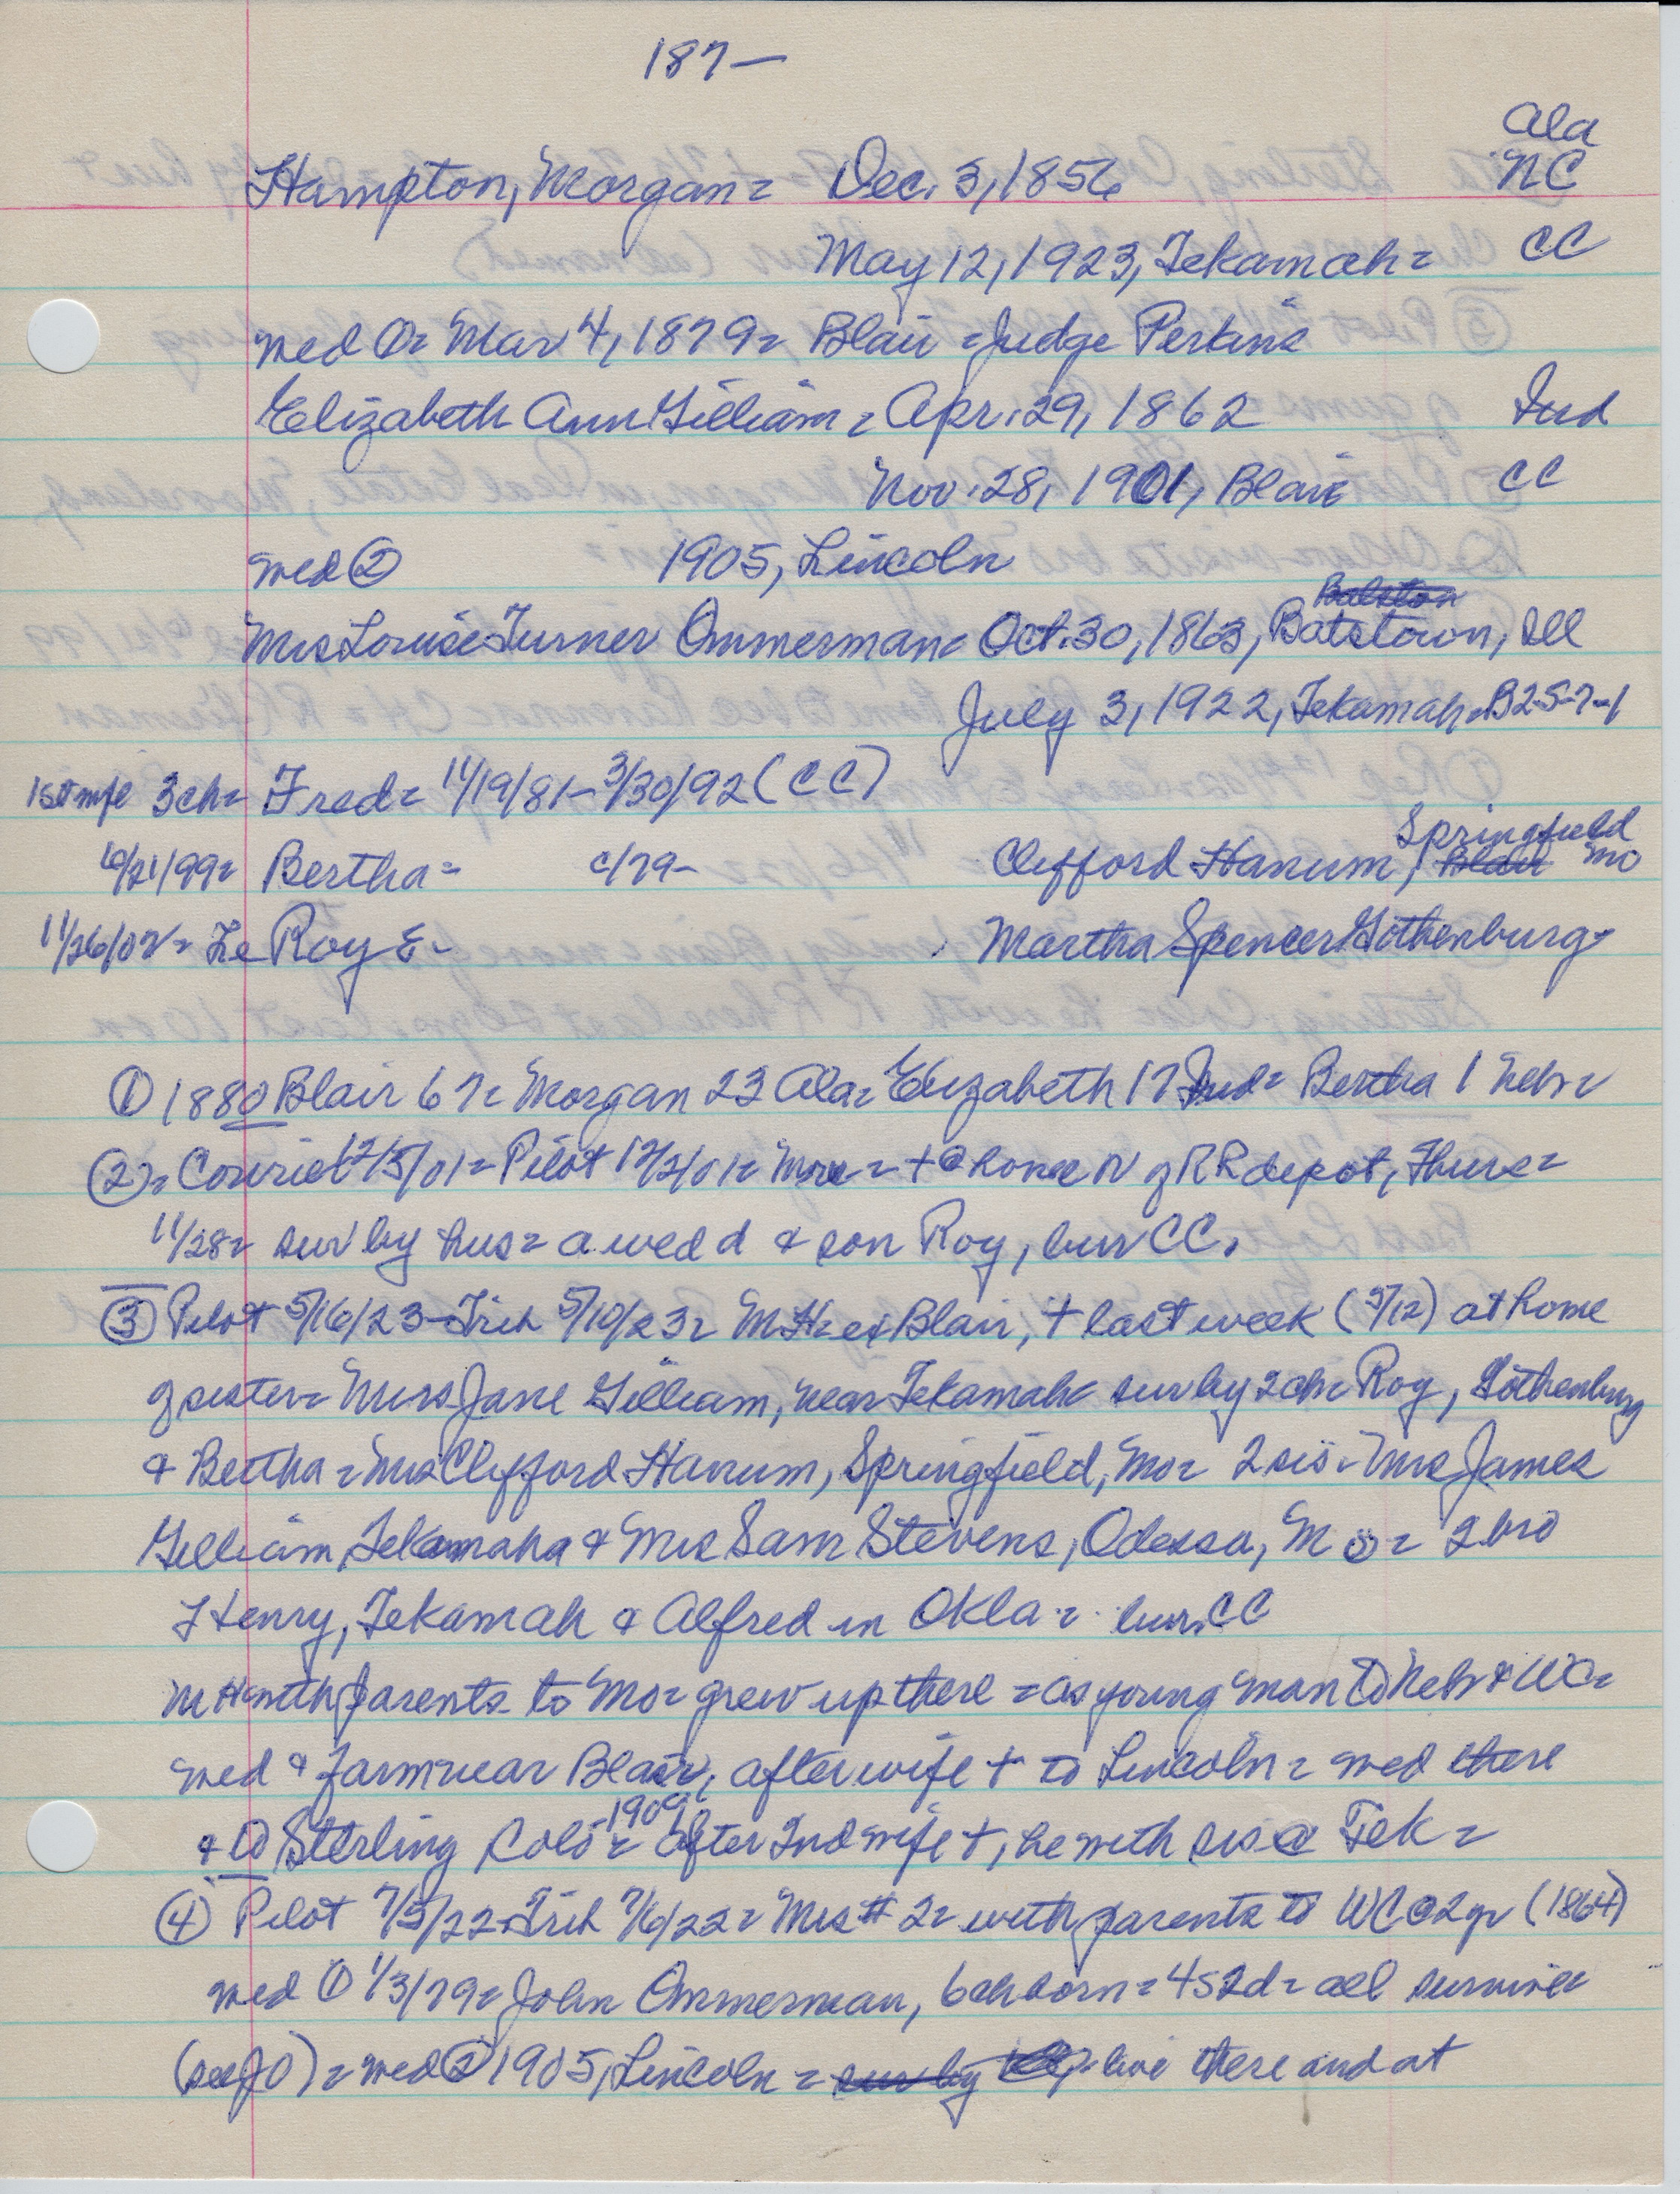 187—
Ala
Hampton, Morgan = Dec. 3, 1856 NC
May 12, 1923, Tekamah = CC
med ① = Mar 4, 1879 = Blair = Judge Perkins
Elizabeth Ann Gilliam = Apr. 29, 1862 Ind
Nov. 28, 1901, Blair CC
med ② 1905, Lincoln
Balston
Mrs Louise Turner Ommerman = Oct. 30, 1863, Batstown, Ill
July 3, 1922, Tekamah = B25-7-1
1st wife 3 ch = Fred = 11/19/81 - 3/30/92 (CC)
Springfield
6/21/99 = Bertha = c/79 - Clifford Hanum, Blair Mo
11/26/02 = Le Roy E - Martha Spencer Gothenburg =
① 1880 Blair 67 = Morgan 23 Ala = Elizabeth 17 Ind = Bertha 1 Nebr =
② = Courier 12/5/01 = Pilot 12/2/01 = Mrs = + @ home N of RR depot, Thurs =
11/28 = sur by hus = a wed d & son Roy, bur CC.
③ Pilot 5/16/23 - Trib 5/10/23 = MH = ex Blair, + last week (5/12) at home
of sister = Mrs Jane Gilliam, near Tekamah = sur by 2 ch = Roy, Gothenburg
& Bertha = Mrs Clifford Hanum, Springfield, Mo = 2 sis = Mrs James
Gilliam, Tekamaha & Mrs Sam Stevens, Odessa, Mo = 2 bro
Henry, Tekamah & Alfred in Okla = bur. CC
MH with parents to Mo = grew up there = as young man to Nebr & WC =
med & farm near Blair, after wife + to Lincoln = med there
1909
& to Sterling Colo = after 2nd wife +, he with sis @ Tek =
④ Pilot 7/5/22 = Trib 7/6/22 = Mrs # 2 = with parents to WC @ 2 yr (1864)
med ① 1/3/79 = John Ommerman, 6 ch born = 4s 2d = all survive
(see JO) = med ② 1905, Lincoln = sur by live there and at